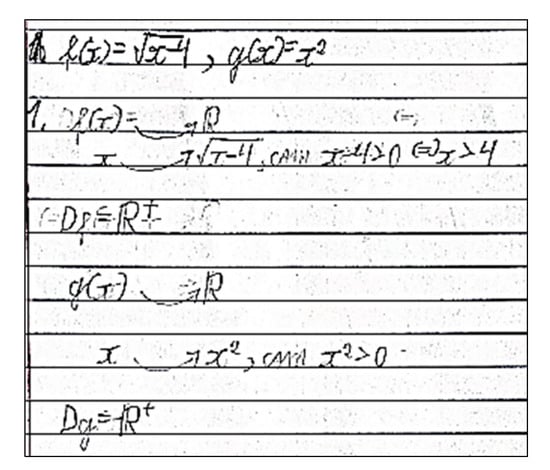 f(x)=√x-4, g(x)=x²
1. Df(x)= → R
x → √x-4, x-4>0 <=> x>4
Df=R+
g(x) → R
x → x², x²>0
Dg=R+